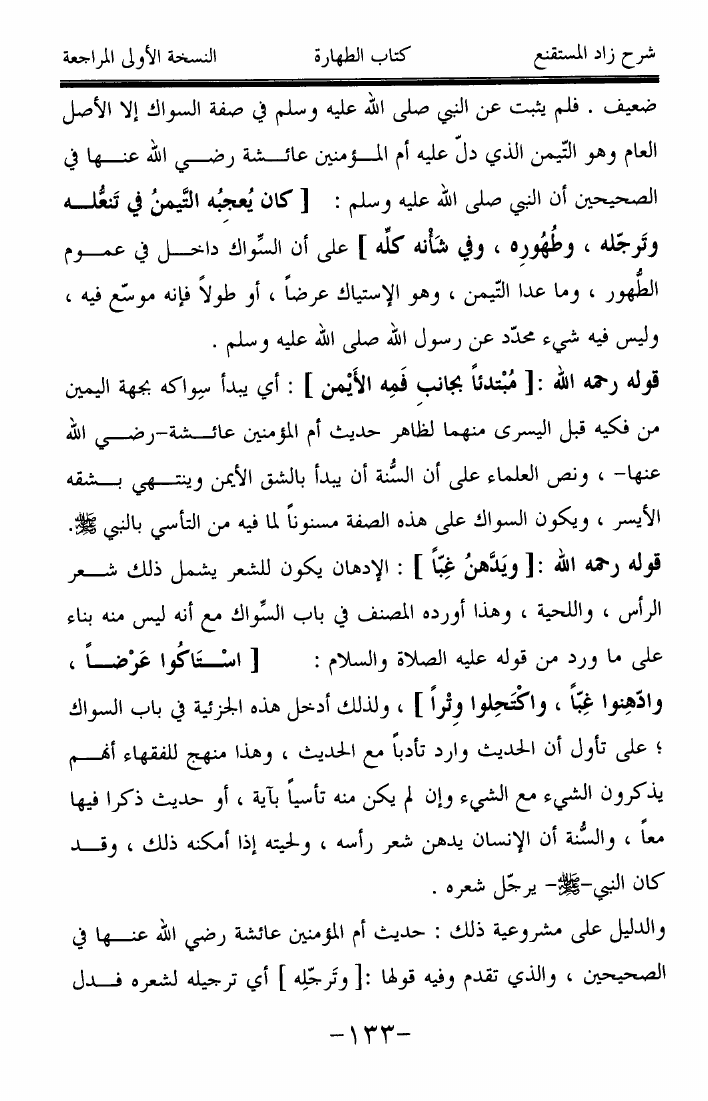 شرح زاد المستقنع كتاب الطهارة النسخة الأولى المراجعة
ضعيف . فلم يثبت عن النبي صلى الله عليه وسلم في صفة السواك إلا الأصل
العام وهو التّيمن الذي دلّ عليه أم المـؤمنين عائـشة رضـي الله عنـها في
الصحيحين أن النبي صلى الله عليه وسلم : [ كان يُعجبُه التَّيمنُ في تَنعُّلـه
وتَرجّله ، وطُهُورِه ، وفي شَأْنه كلِّه ] على أن السِّواك داخـل في عمـوم
الطُّهور ، وما عدا التّيمن ، وهو الإستياك عرضاً ، أو طولاً فإنه موسّع فيه ،
وليس فيه شيء محدّد عن رسول الله صلى الله عليه وسلم .
قوله رحمه الله :[ مُبْتدئاً بجانبِ فَمِه الأَيْمن ] : أي يبدأ سِواكه بجهة اليمين
من فكيه قبل اليسرى منهما لظاهر حديث أم المؤمنين عائـشة-رضـي الله
عنها- ، ونص العلماء على أن السُّنة أن يبدأ بالشق الأيمن وينتـهي بـشقه
الأيسر ، ويكون السواك على هذه الصفة مسنوناً لما فيه من التأسي بالنبي ﷺ.
قوله رحمه الله :[ ويَدَّهنُ غِبّاً ] : الإدهان يكون للشعر يشمل ذلك شـعر
الرأس ، واللحية ، وهذا أورده المصنف في باب السِّواك مع أنه ليس منه بناء
على ما ورد من قوله عليه الصلاة والسلام : [ اسْـتَاكُوا عَرْضـاً ،
وادّهِنوا غِبّاً ، واكْتَحِلوا وِتْراً ] ، ولذلك أدخل هذه الجزئية في باب السواك
؛ على تأول أن الحديث وارد تأدباً مع الحديث ، وهذا منهج للفقهاء أنهـم
يذكرون الشيء مع الشيء وإن لم يكن منه تأسياً بآية ، أو حديث ذكرا فيها
معاً ، والسُّنة أن الإنسان يدهن شعر رأسه ، ولحيته إذا أمكنه ذلك ، وقـد
كان النبي-ﷺ- يرجّل شعره .
والدليل على مشروعية ذلك : حديث أم المؤمنين عائشة رضي الله عنـها في
الصحيحين ، والذي تقدم وفيه قولها :[ وتَرجّلِه ] أي ترجيله لشعره فـدل
-١٣٣-